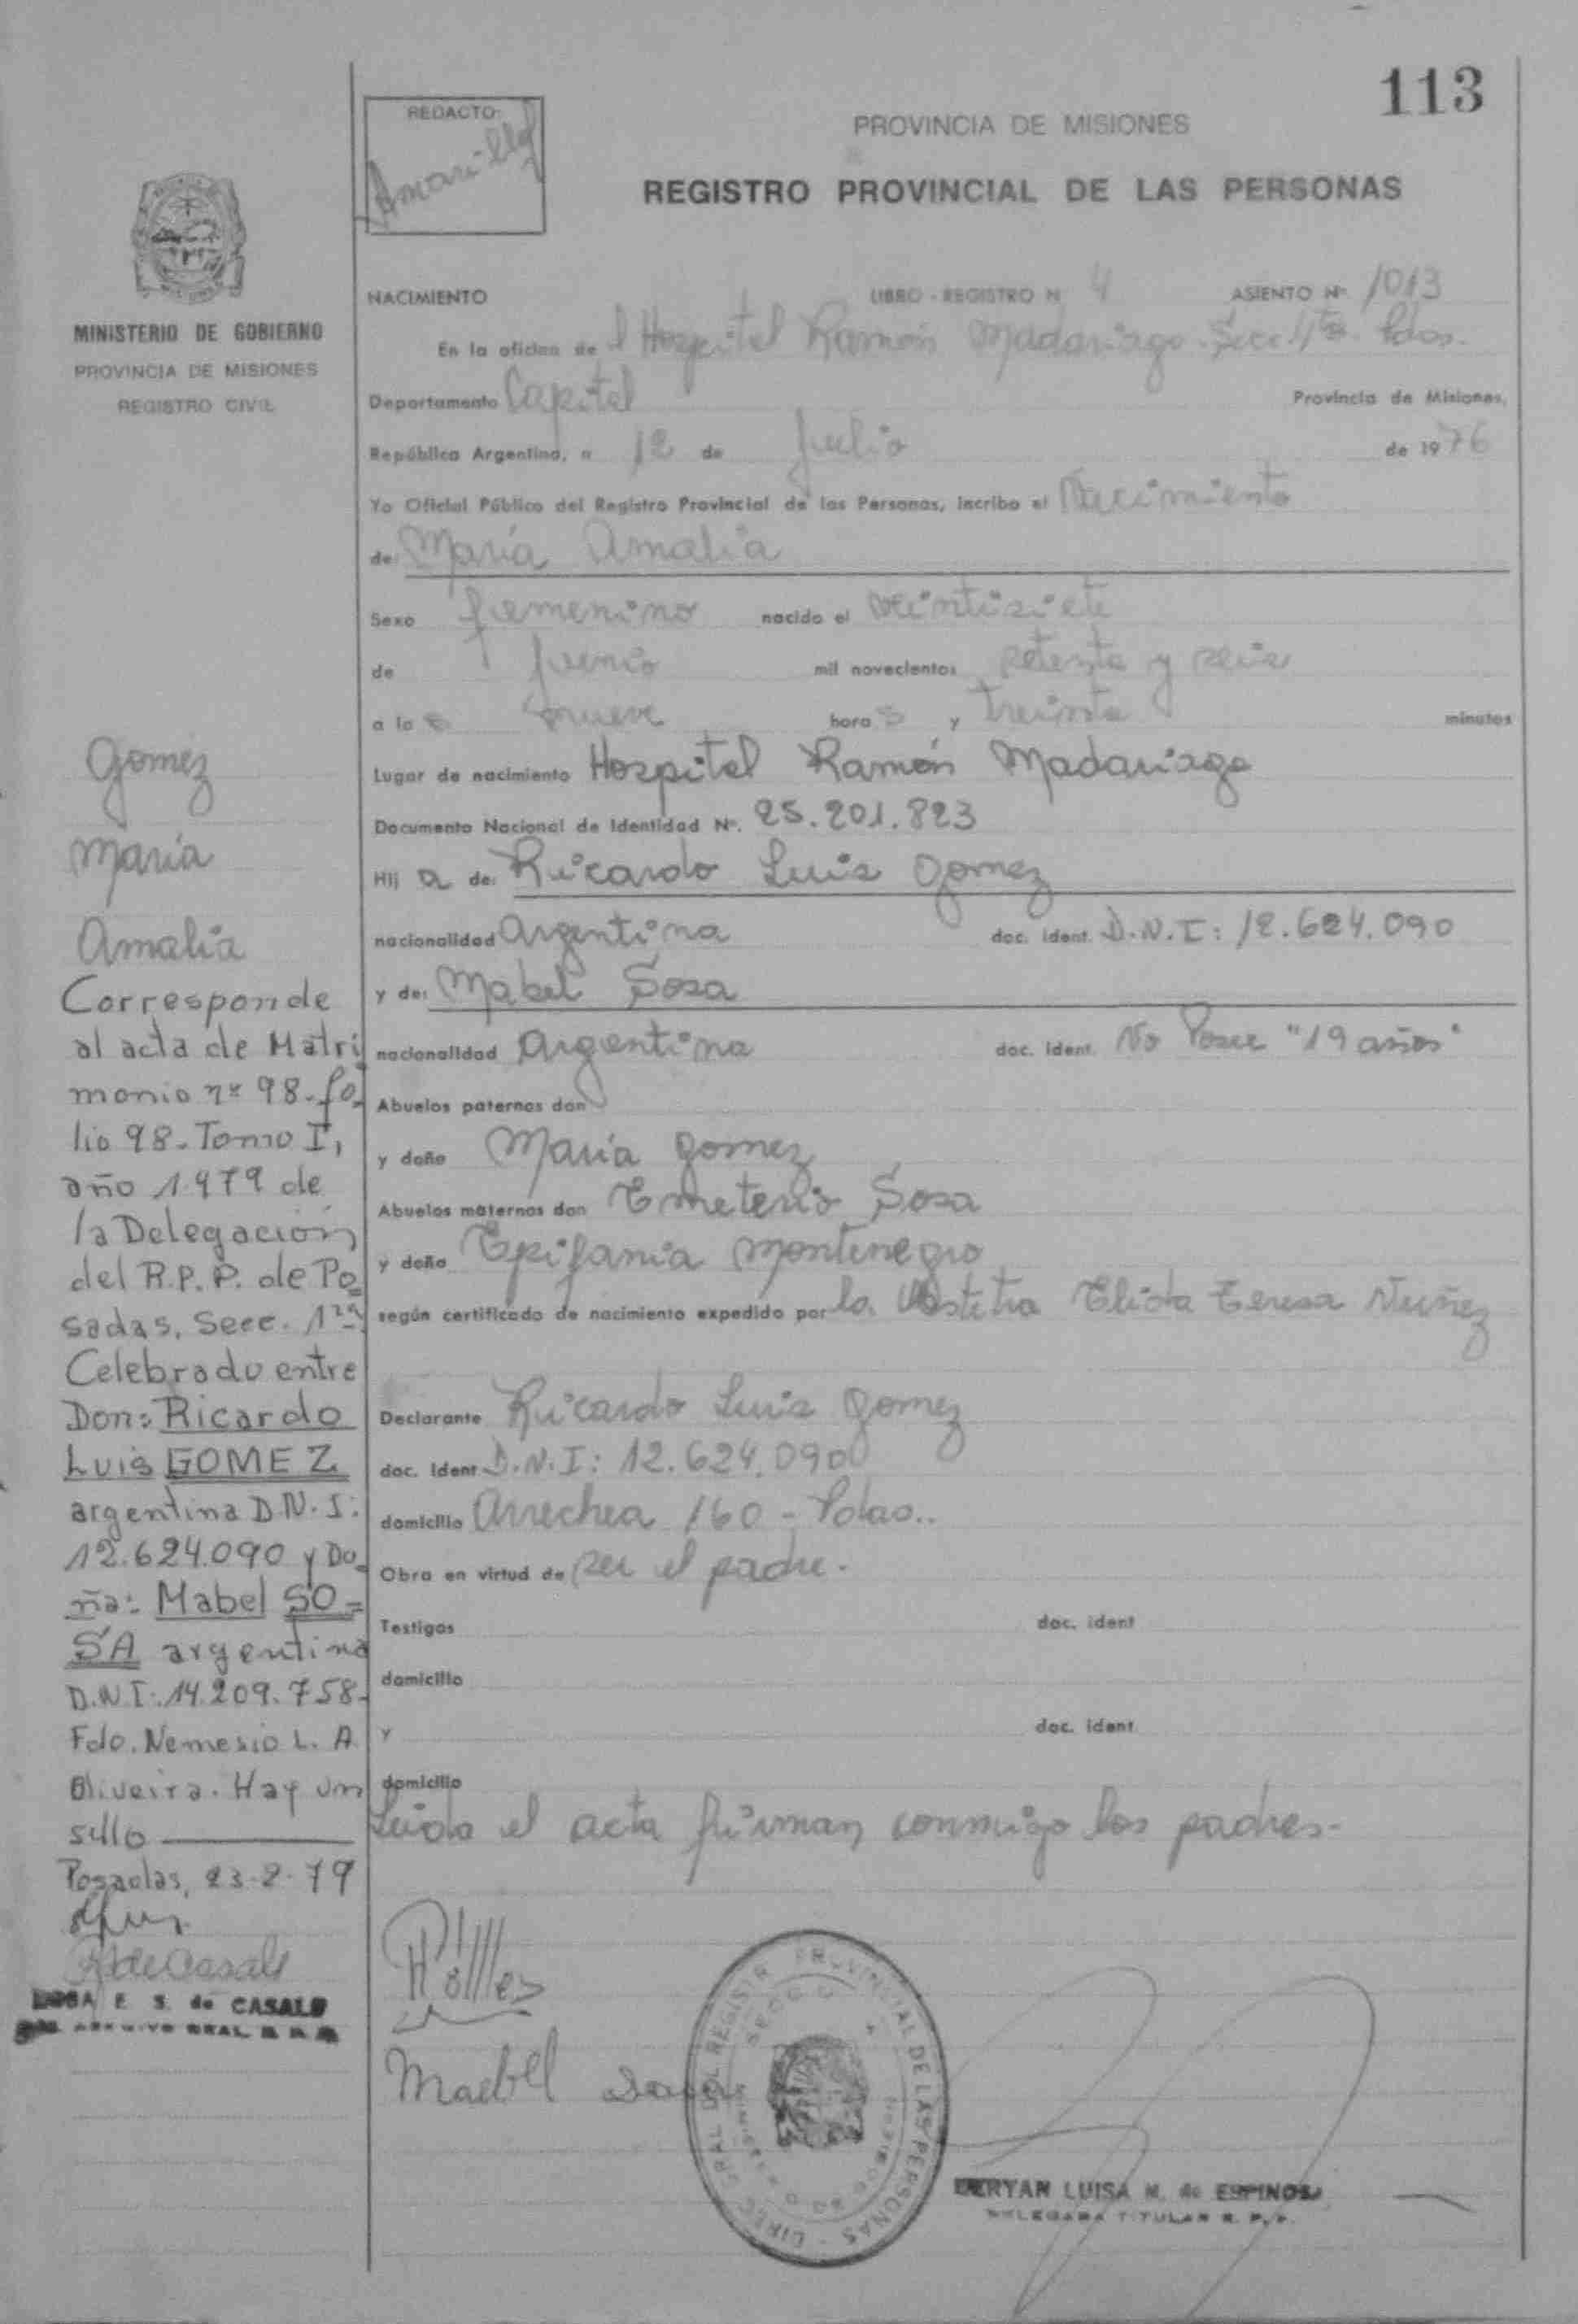 113
REDACTO:
PROVINCIA DE MISIONES
REGISTRO PROVINCIAL DE LAS PERSONAS
MINISTERIO DE GOBIERNO
PROVINCIA DE MISIONES
REGISTRO CIVIL
NACIMIENTO LIBRO - REGISTRO N 4 ASIENTO Nº 1013
En la oficina de l Hospital Ramón Madariaga. Secc 4ta. Pdas.
Departamento Capital Provincia de Misiones,
República Argentina, a 12 de Julio de 1976
Yo Oficial Público del Registro Provincial de las Personas, incribo el Nacimiento
de: María Amalia
Sexo femenino nacido el veintisiete
de Junio mil novecientos setenta y seis
a las nueve horas y treinta minutos
Lugar de nacimiento Hospital Ramón Madariaga
Documento Nacional de Identidad Nº. 25.201.823
Hij a de: Ricardo Luis Gomez
nacionalidad Argentina doc. ident. D.N.I: 12.624.090
y de: Mabel Sosa
nacionalidad Argentina doc. ident. No Posee "19 años"
Abuelos paternos don
y doña María Gomez
Abuelos maternos don Emeterio Sosa
y doña Epifania Montenegro
según certificado de nacimiento expedido por la Obstetra Elida Teresa Nuñez
Declarante Ricardo Luis Gomez
doc. ident D.N.I: 12.624.090
domicilio Arrechea 160 - Pdas..
Obra en virtud de ser el padre.
Testigos doc. ident
domicilio
y doc. ident
domicilio
Leida el acta firman conmigo los padres.
Gomez
María
Amalia
Corresponde
al acta de Matri
monio nº 98-fo_
lio 98-Tomo I,
año 1.979 de
la Delegación
del R.P.P. de Po_
sadas, Secc. 1ra
Celebrado entre
Don: Ricardo
Luis GOMEZ
argentina D.N.I:
12.624.090 y Do_
ña: Mabel SO=
SA argentina
D.N.I: 14.209.758-
Fdo. Nemesio L. A
Oliveira. Hay un
sello
Posadas, 23-2-79
R de Casals
E. S. de CASALS
Maebel Sosa
DIREC GRAL DEL REGISTR PROVINCIAL DE LAS PERSONAS
LUISA M. de ESPINOSA
DELEGADA TITULAR R. P. P.